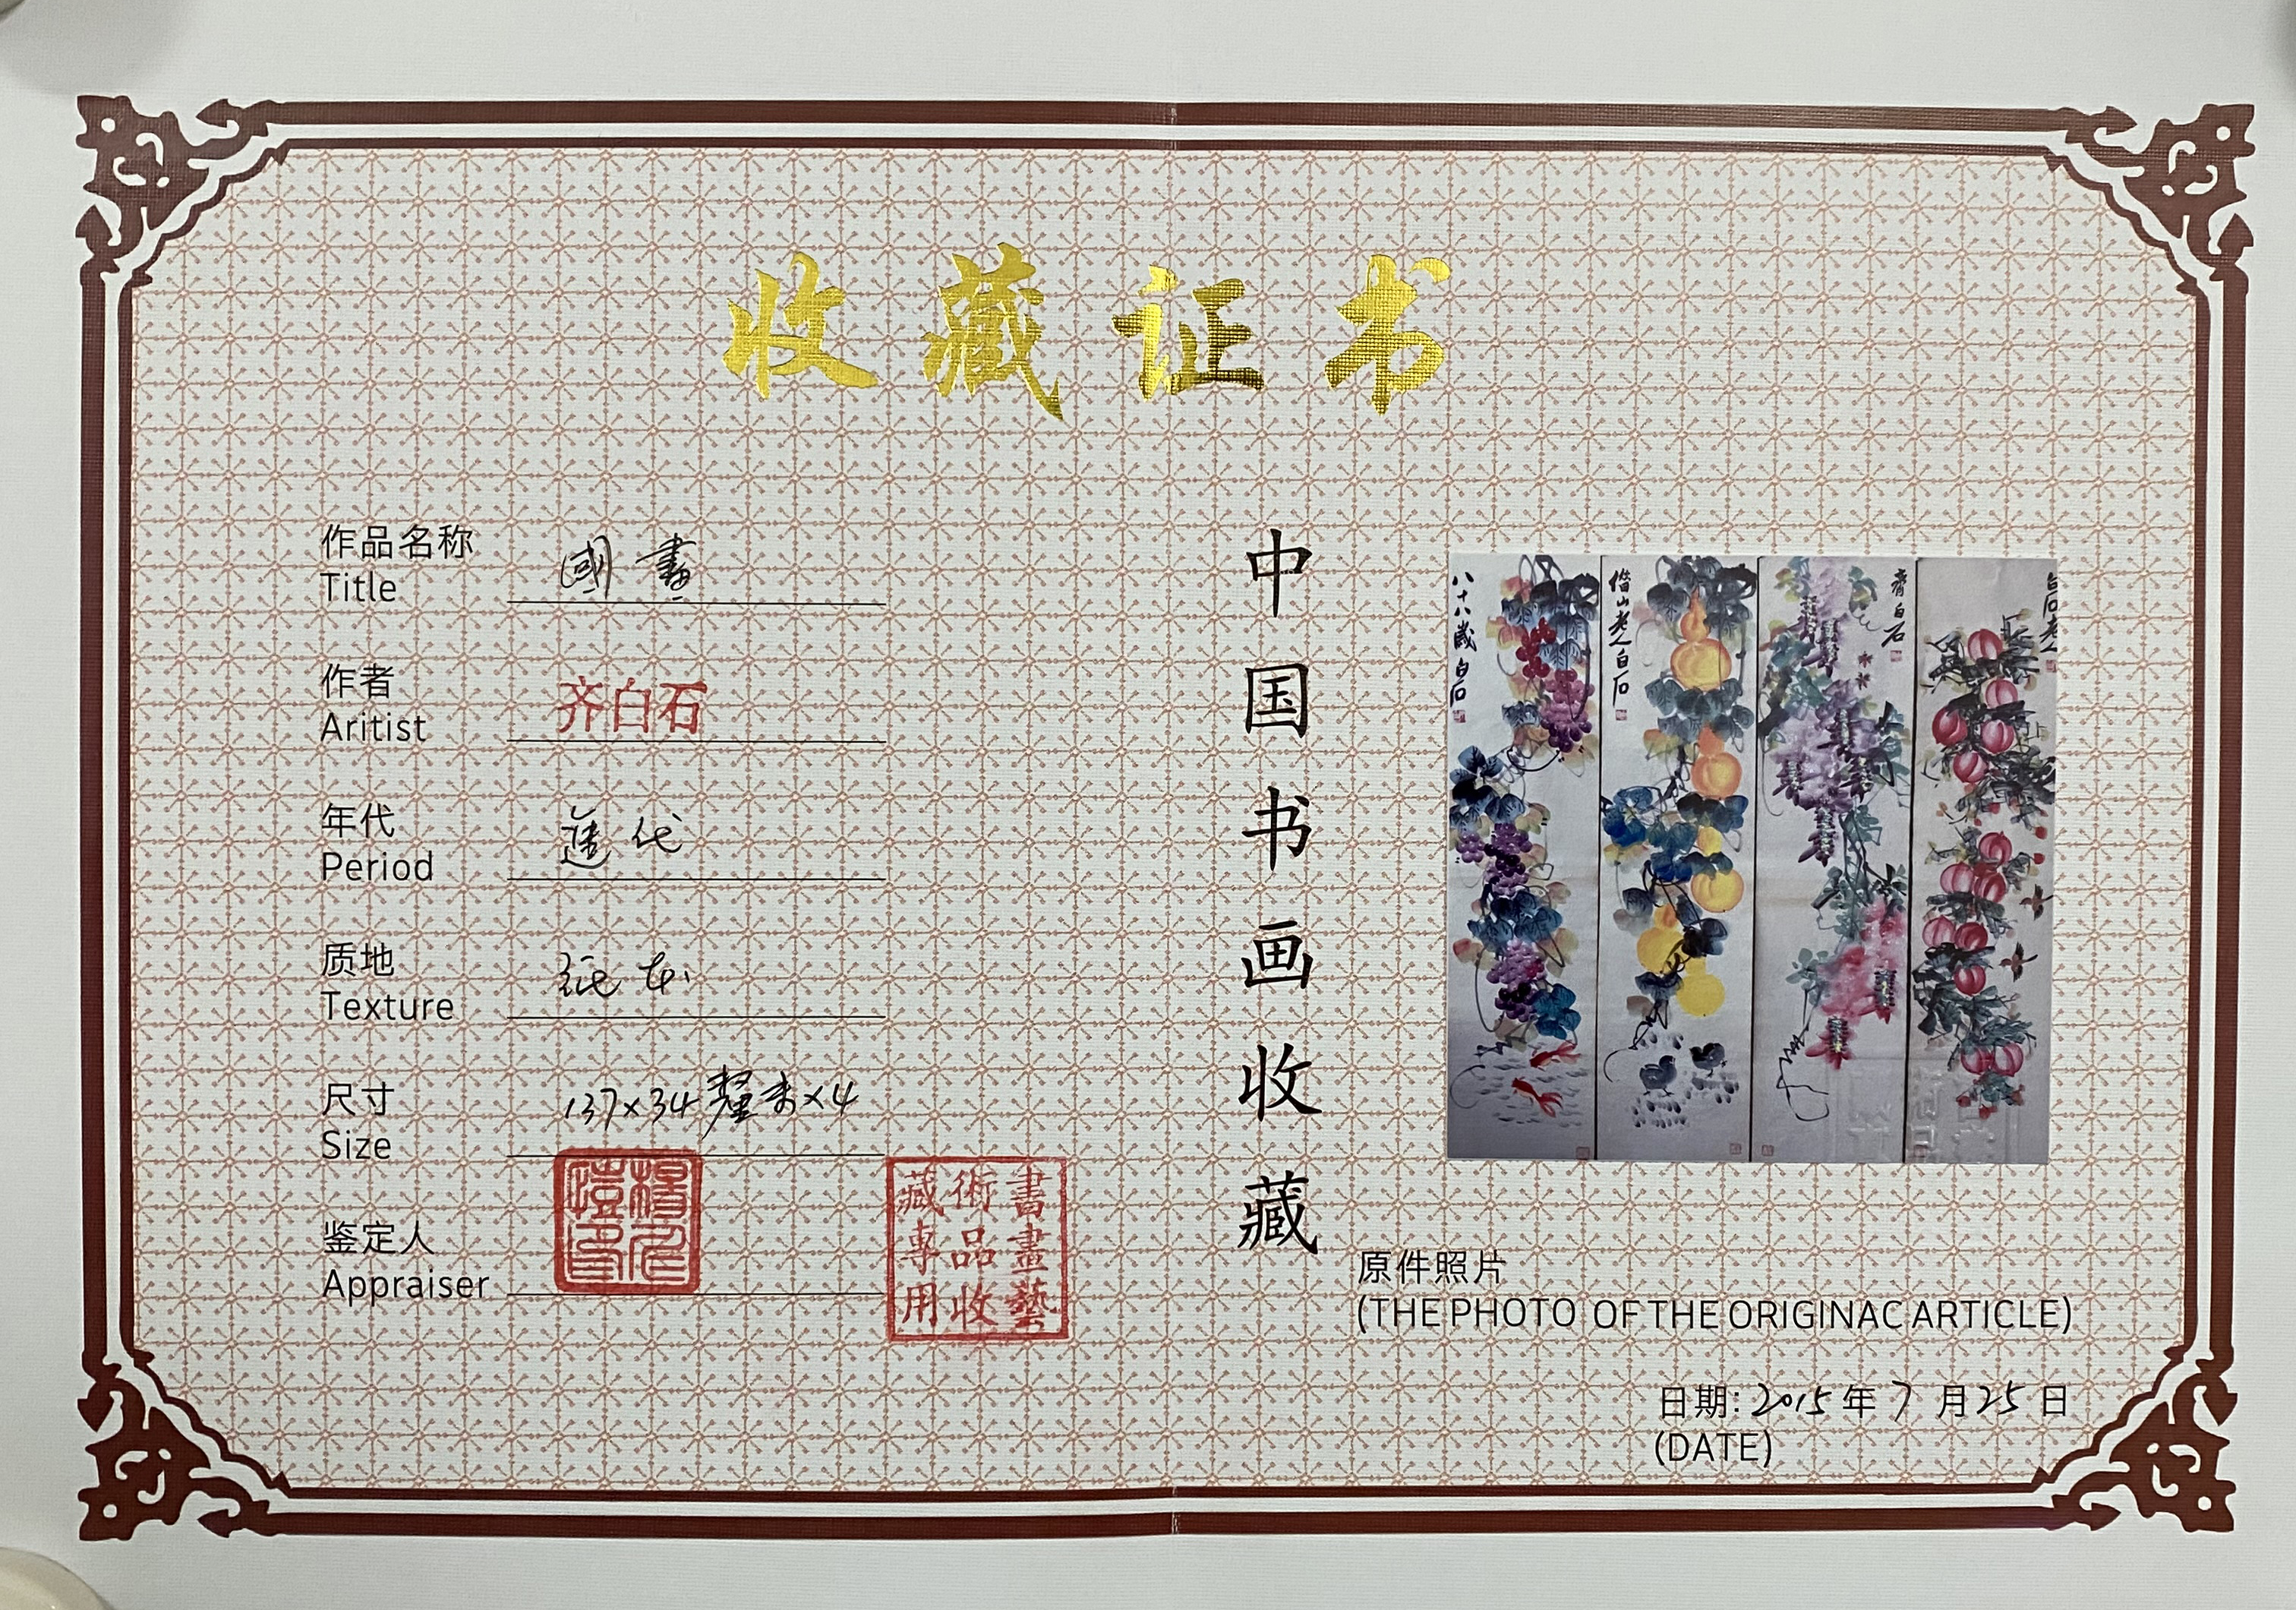 收藏证书
作品名称
Title
國畫
作者
Aritist
齐白石
年代
Period
近代
质地
Texture
纸本
尺寸
Size
137×34釐米×4
鉴定人
Appraiser
書畫藝
術品收
藏專用
中国书画收藏
八十八歲白石
借山老人白石
齊白石
白石老人
原件照片
(THE PHOTO OF THE ORIGINAC ARTICLE)
日期: 2015年7月25日
(DATE)